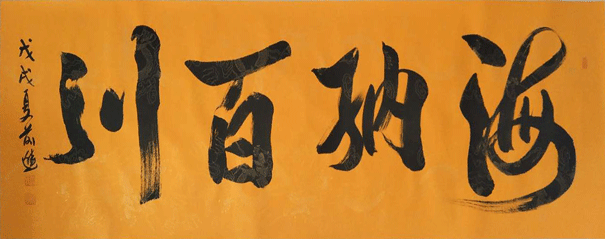 海纳百川
戊戌夏